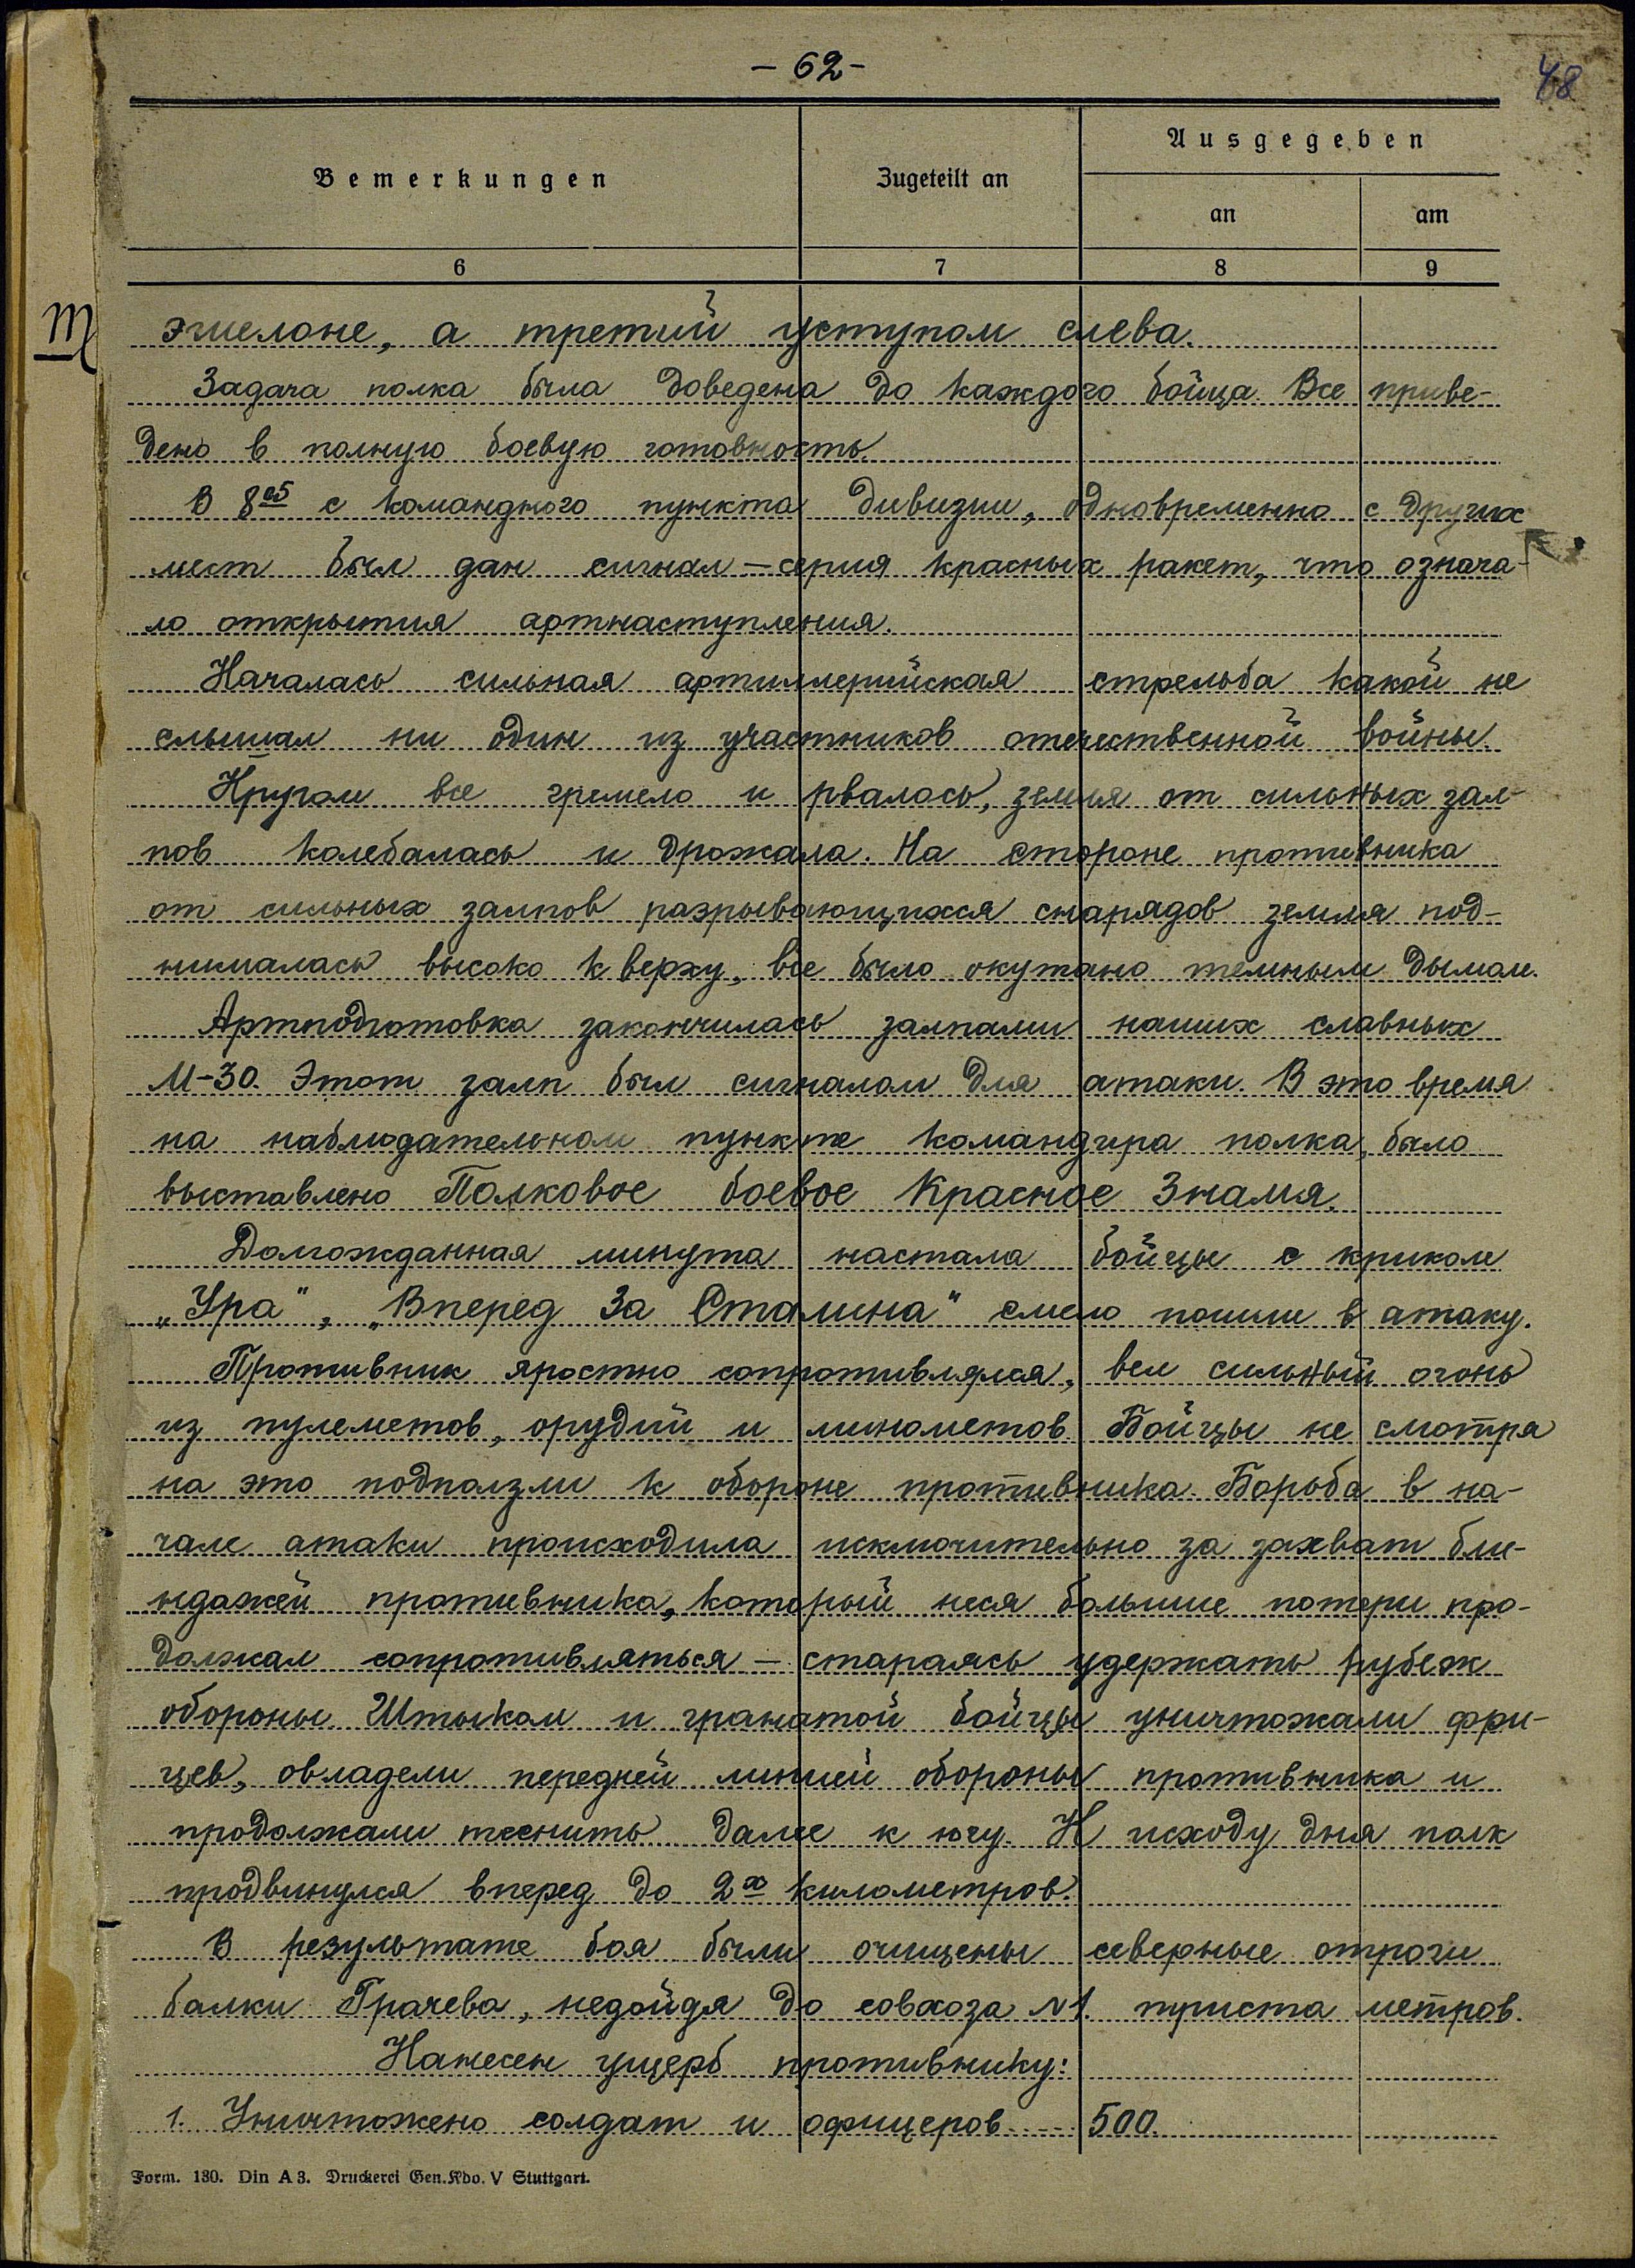 - 62 -
48
Bemerkungen
Zugeteilt an
Ausgegeben
an
am
6
7
8
9
эшелоне, а третий уступом слева.
Задача полка была доведена до каждого бойца. Все приве-
дено в полную боевую готовность.
В 8 05 с командного пункта дивизии, одновременно с других
мест был дан сигнал - серия красных ракет, что означа-
ло открытия артнаступления.
Началась сильная артиллерийская стрельба какой не
слышал ни один из участников отечественной войны.
Кругом все гремело и рвалось, земля от сильных зал-
пов колебалась и дрожала. На стороне противника
от сильных залпов разрывающихся снарядов земля под-
нималась высоко к верху, все было окутано темным дымом.
Артподготовка закончилась залпами наших славных
М-30. Этот залп был сигналом для атаки. В это время
на наблюдательном пункте командира полка, было
выставлено Полковое боевое Красное Знамя.
Долгожданная минута настала бойцы с криком
„Ура", „Вперед за Сталина" смело пошли в атаку.
Противник яростно сопротивлялся, вел сильный огонь
из пулеметов, орудий и минометов. Бойцы не смотря
на это подползли к обороне противника. Борьба в на-
чале атаки происходила исключительно за захват бли-
ндажей противника, который неся большие потери про-
должал сопротивляться - стараясь удержать рубеж
обороны. Штыком и гранатой бойцы уничтожали фри-
цев, овладели передней линией обороны противника и
продолжали теснить далее к югу. К исходу дня полк
продвинулся вперед до 2х километров.
В результате боя были очищены северные отроги
балки Грачева, недойдя до совхоза №1. триста метров.
Нанесен ущерб противнику:
1. Уничтожено солдат и офицеров ---- 500.
Form. 130. Din A 3. Druckerei Gen.Kdo. V Stuttgart.